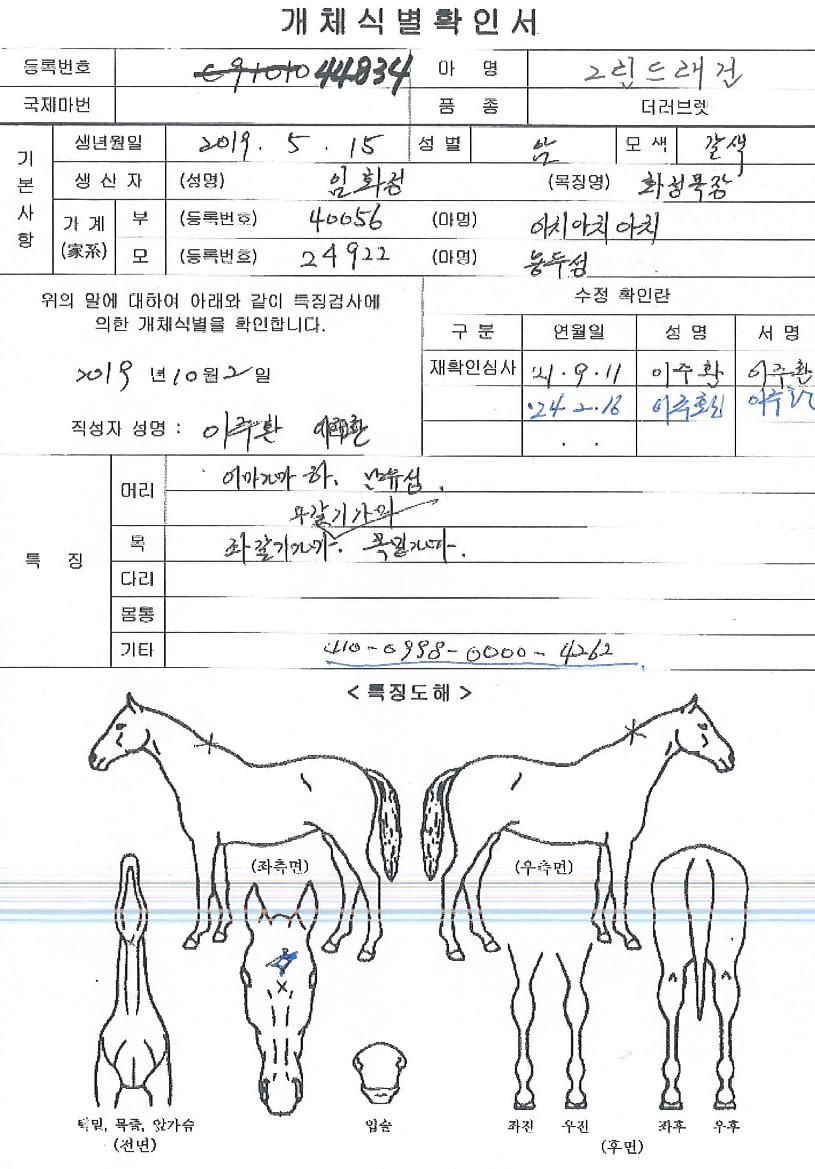 개체식별확인서
등록번호 44834 마 명 그린드래건
국제마번 품 종 더러브렛
기본사항
생년월일 2019. 5. 15 성별 암 모색 갈색
생산자 (성명) 임화정 (목장명) 화성목장
가계 (家系) 부 (등록번호) 40056 (마명) 아치아치아치
모 (등록번호) 24922 (마명)
위의 말에 대하여 아래와 같이 특징검사에
의한 개체식별을 확인합니다.
2019 년 10 월 2 일
작성자 성명 : 이주환 이주환
수정 확인란
구 분 연월일 성 명 서 명
재확인심사 '21.9.11 이주환 이주환
'24.2.16 이주환 이주환
. .
특 징
머리 이마가마 하.
목 좌갈기가마. 목밑가마.
다리
몸통
기타 410-0998-0000-4262
< 특징도해 >
(좌측면) (우측면)
턱밑, 목줄, 앞가슴
(전면)
입술
좌전 우전 좌후 우후
(후면)